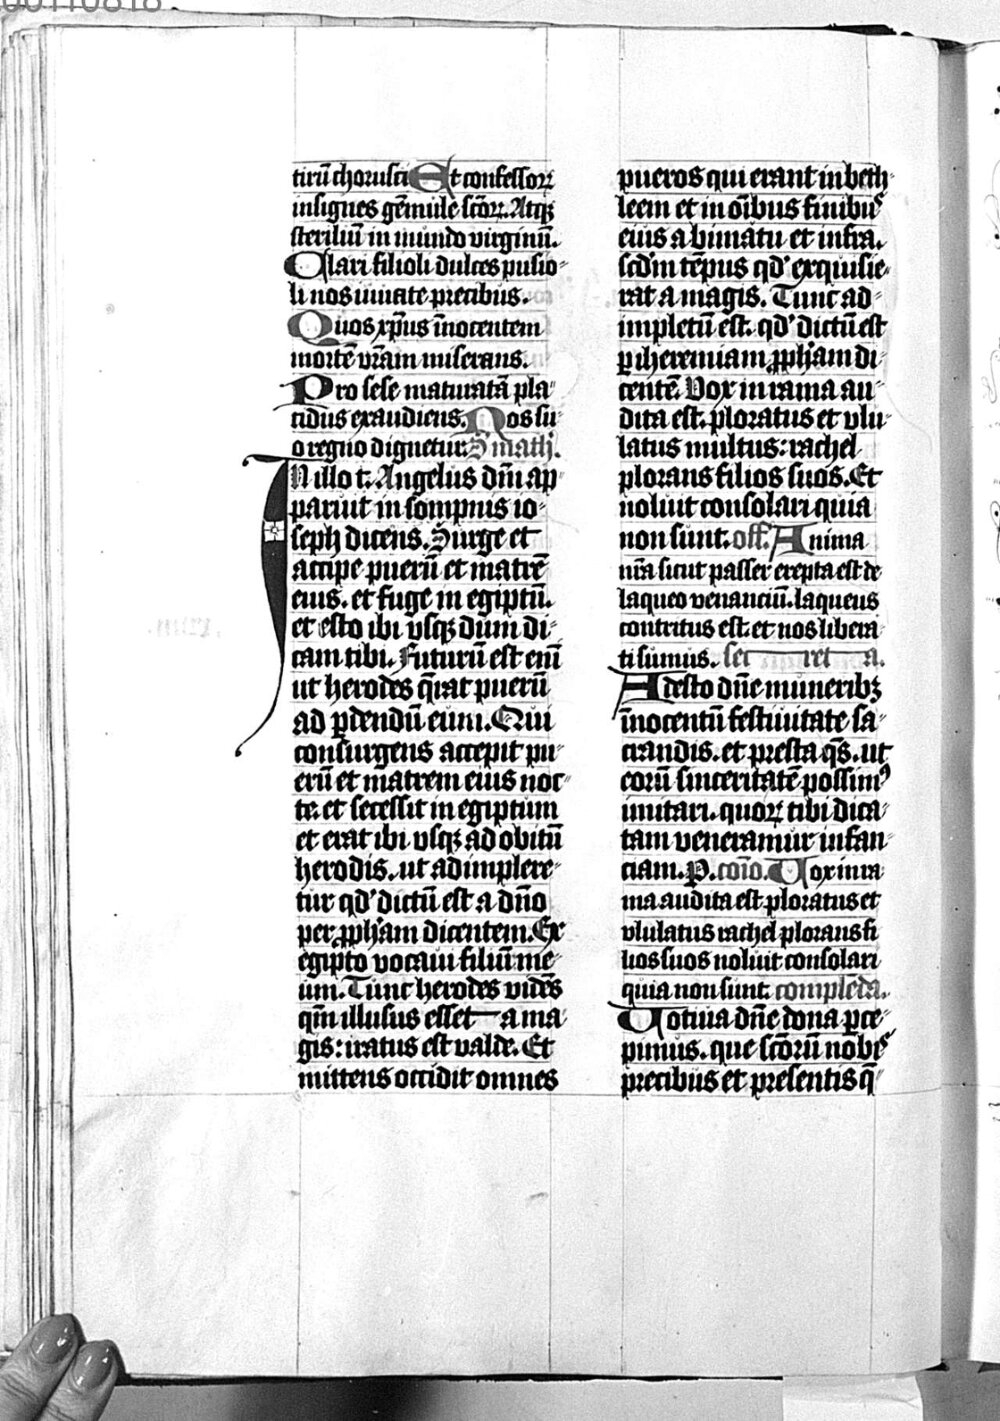 tirū chorusci Et confessorꝝ
insignes gēmule scōꝝ. Atqꝫ
steriliū in mundo virginū.
Clari filioli dulces pusio-
li nos iuuate precibus.
Quos xp̄us īnocentem
mortē vrām miserans.
Pro sese maturatā pla-
cidus exaudiens. Nos su-
o regno dignetur. S math.
In illo t. Angelus dn̄i ap-
paruit in sompnis io-
seph dicens. Surge et
accipe puerū et matrē
eius. et fuge in egiptū.
et esto ibi vsqꝫ dum di-
cam tibi. Futurū est enī
ut herodes q̄rat puerū
ad ꝑdendū eum. Qui
consurgens accepit pu-
erū et matrem eius noc-
te. et secessit in egiptum
et erat ibi vsqꝫ ad obitū
herodis. ut adimplere-
tur qd' dictū est a dn̄o
per ꝓph'am dicentem. Ex
egipto vocaui filiū me-
um. Tunc herodes vidēs
qm̄ illusus esset a ma-
gis: iratus est valde. Et
mittens occidit omnes
pueros qui erant in beth-
leem et in oībus finibꝰ
eius a bimatu et infra.
scd'm tēpus qd' exquisie-
rat a magis. Tunc ad-
impletū est. qd' dictū est
ꝑ iheremiam ꝓph'am di-
centē. Vox in rama au-
dita est. ploratus et vlu-
latus multus: rachel
plorans filios suos. Et
noluit consolari quia
non sunt. off. Anima
nr̄a sicut passer erepta est de
laqueo venanciū. laqueus
contritus est. et nos libera-
ti sumus. sec ret a.
Adesto dn̄e muneribꝫ
īnocentū festiuitate sa-
crandis. et presta q̄s. ut
eorū sinceritatē possimꝰ
imitari. quoꝝ tibi dica-
tam veneramur infan-
ciam. P. cōīo. Vox in ra-
ma audita est ploratus et
vlulatus rachel plorans fi-
lios suos noluit consolari
quia non sunt. complēda.
Votiua dn̄e dona ꝑce-
pimus. que scōrū nobꝭ
precibus et presentis q̄-